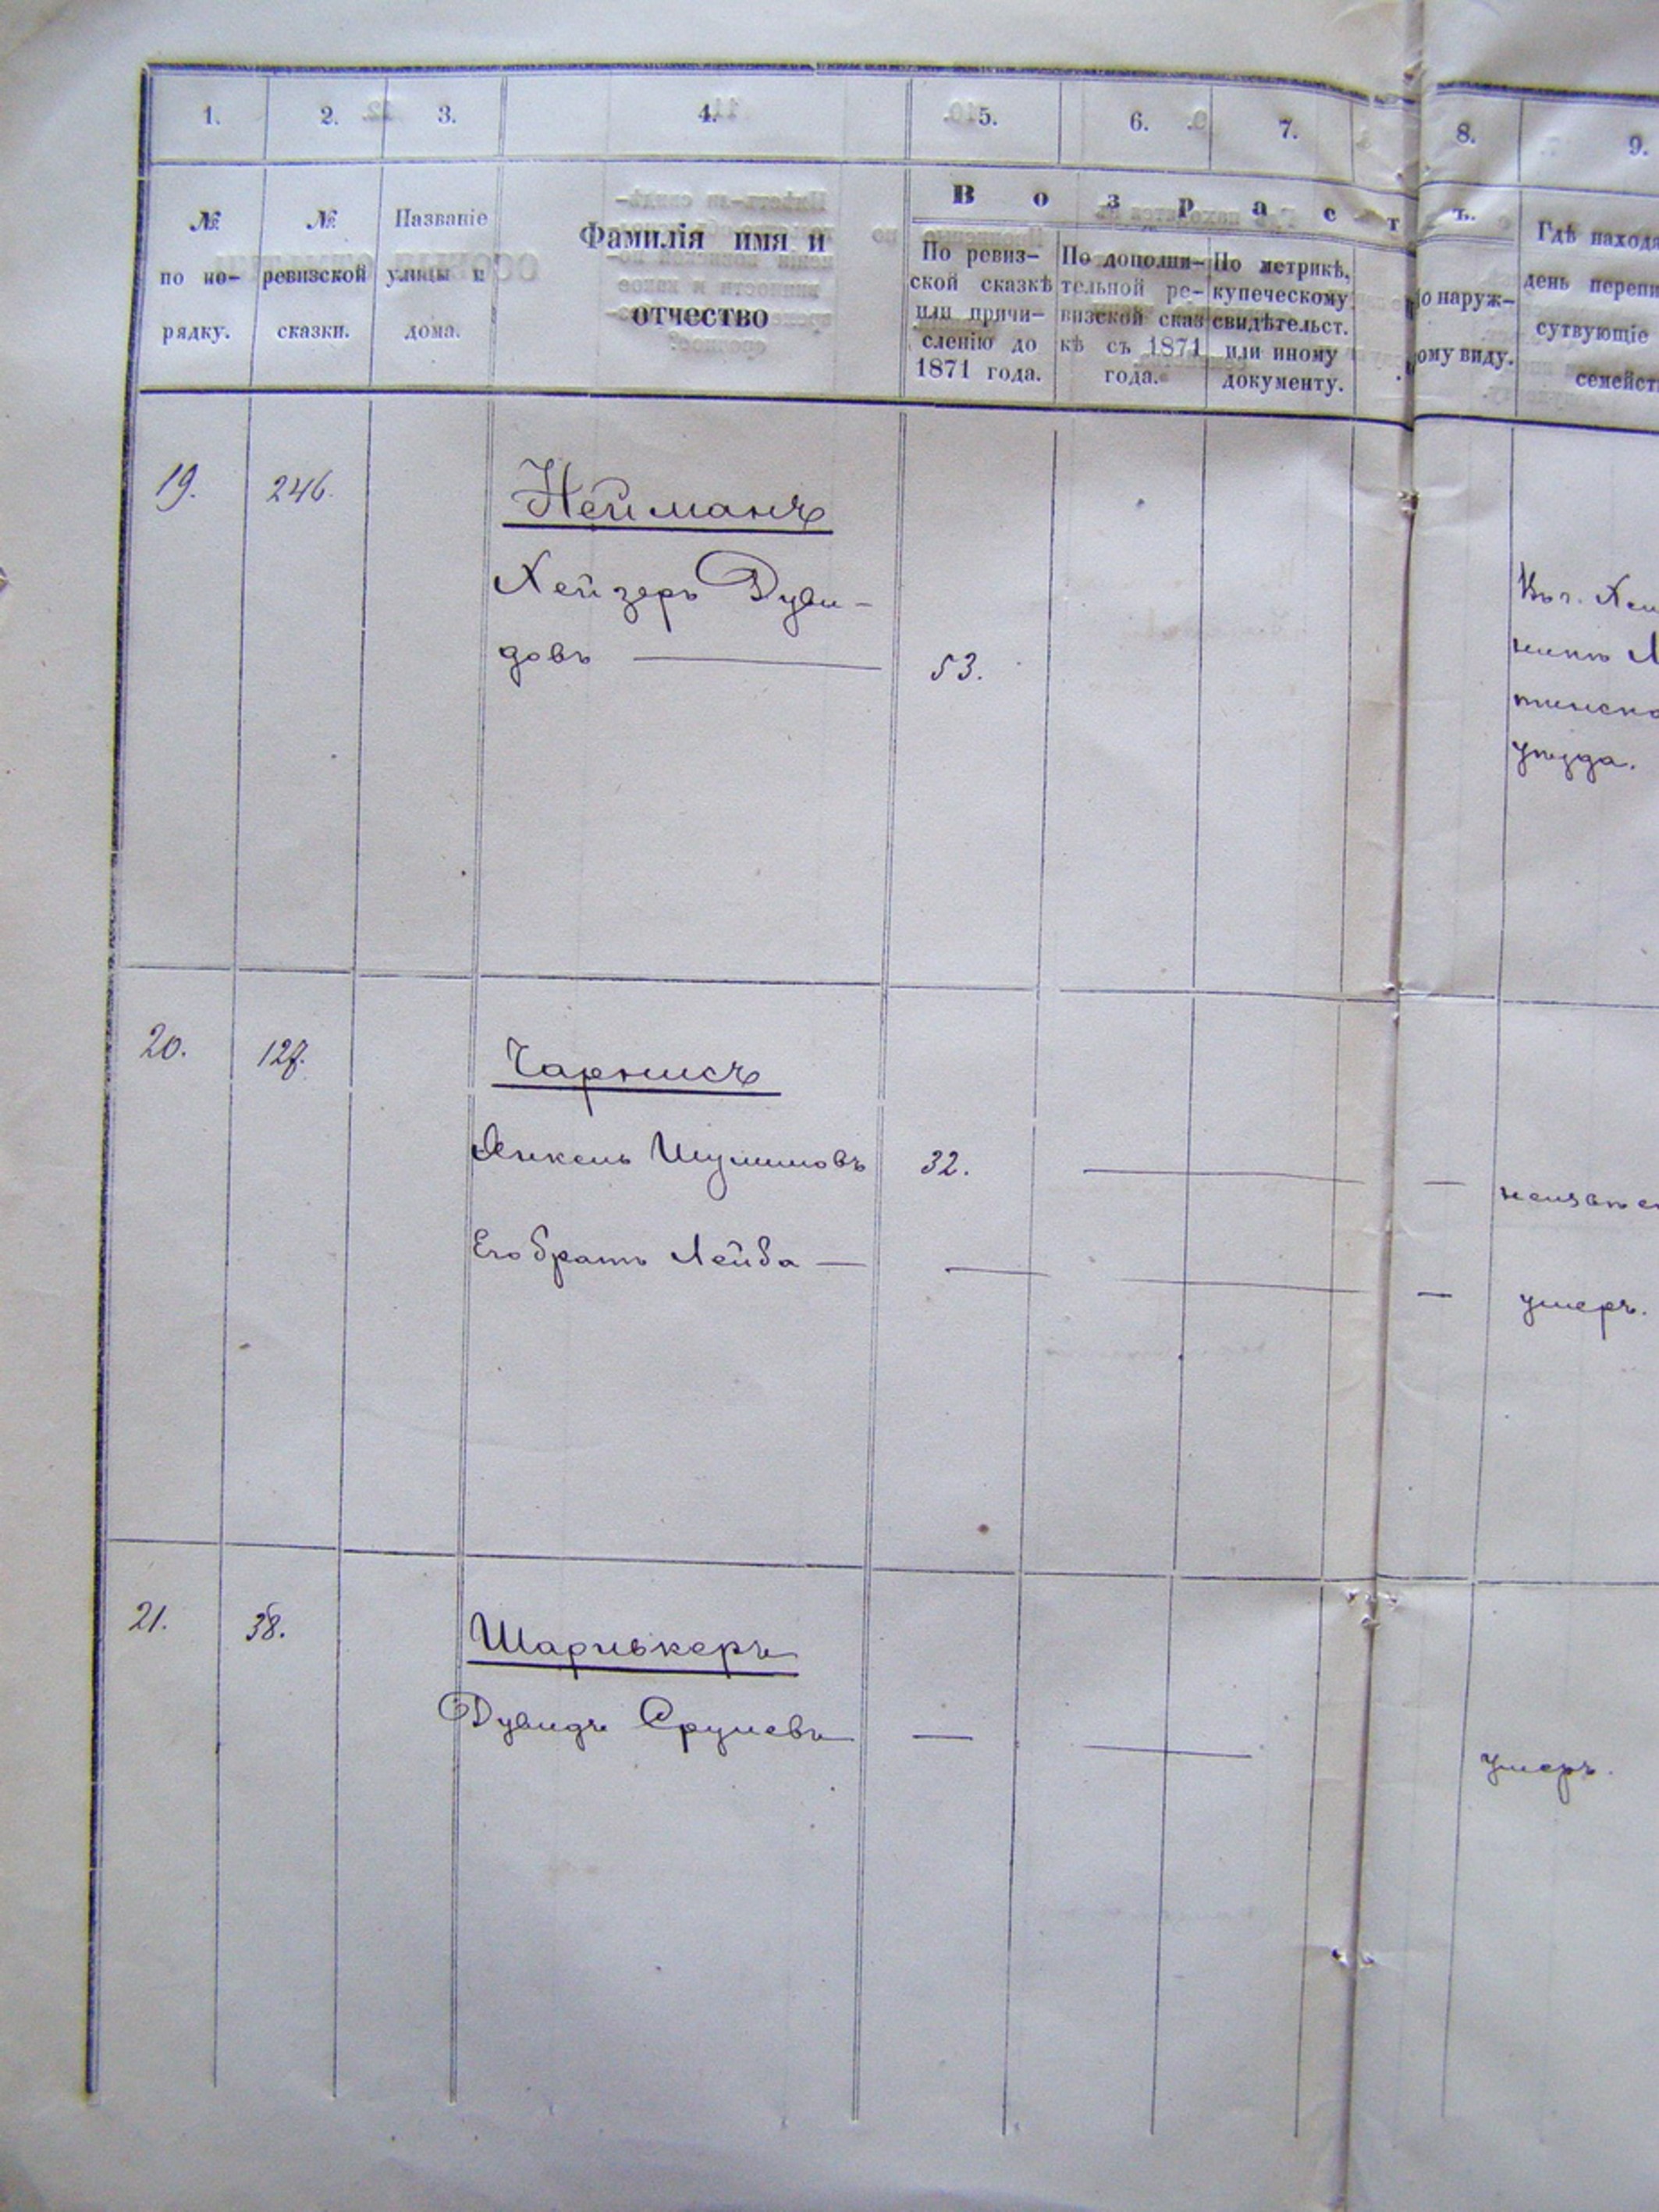 1. 2. 3. 4. 5. 6. 7. 8. 9.
№ по по-
рядку.
№ ревизской
сказки.
Названіе
улицы и
дома.
Фамилія имя и
отчество
Возрастъ.
По ревиз-
ской сказкѣ
или причи-
сленію до
1871 года.
По дополни-
тельной ре-
визской сказ
кѣ съ 1871
года.
По метрикѣ,
купеческому
свидѣтельст.
или иному
документу.
о наруж-
ому виду.
Гдѣ находя
день перепи
сутвующіе
семейст
19. 246. Нейманъ
Хейзеръ Дуви-
довъ — 53.
уѣзда.
20. 127. Чарнисъ
Янкель Шулимовъ 32. — —
Его братъ Лейба — — — — умеръ.
21. 38. Шаривкеръ
Дувидъ Срулевъ — — умеръ.